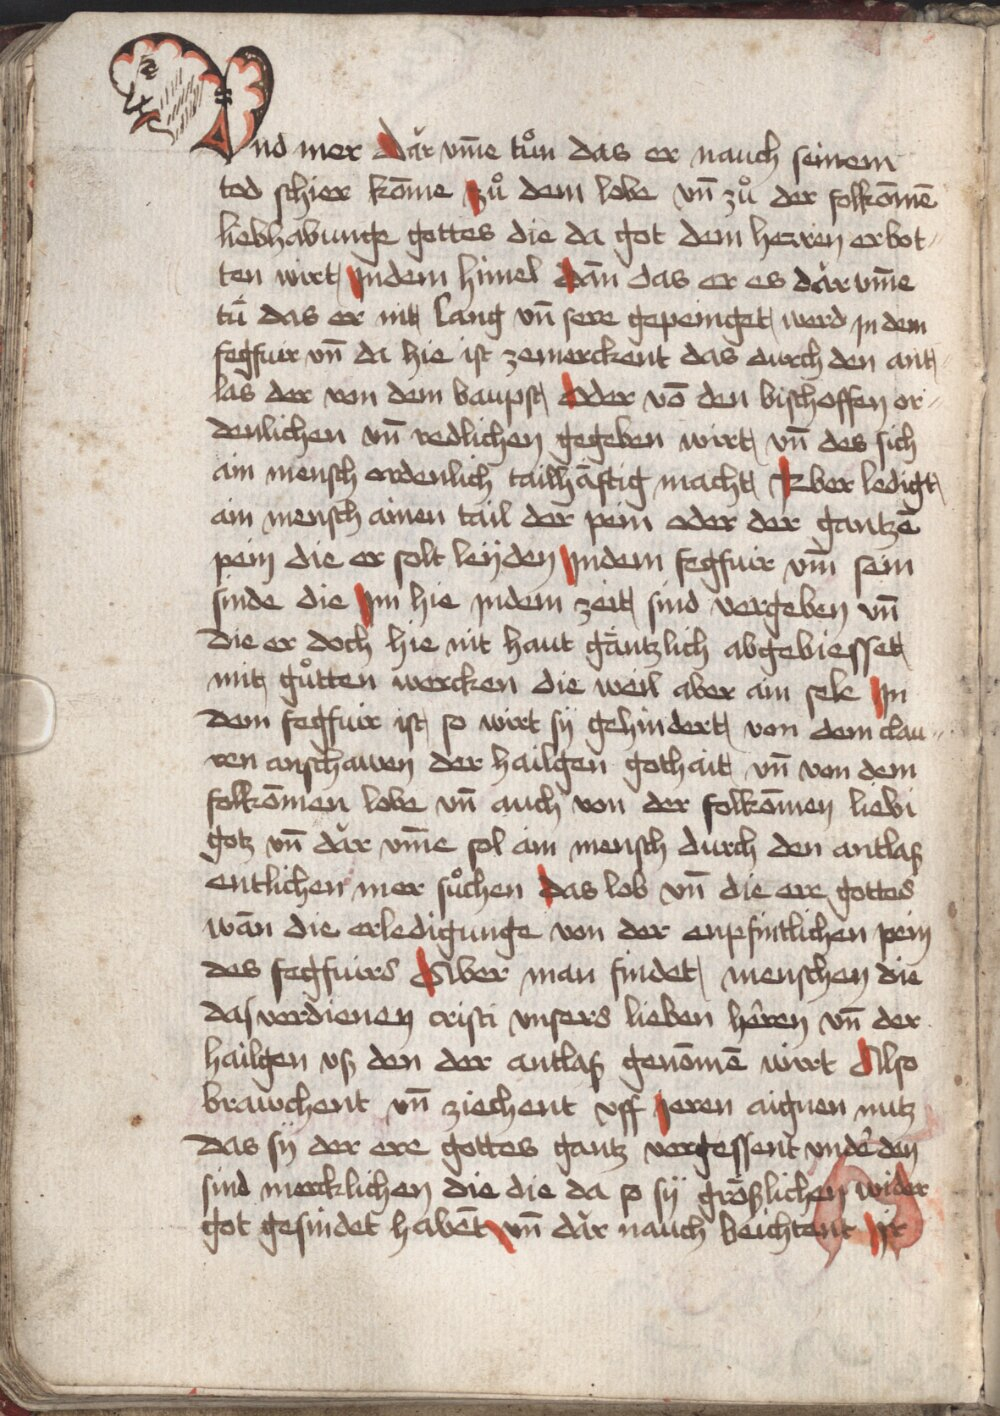 Vnd mer Dar vm̄e tůn das er nauch seinem
tod schier kōme zů dem lobe vn̄ zů der folkōmē
liebhabunge gottes die da got dem herren erbot-
ten wirt Jndem himel dān das er es dar vm̄e
tů das er nit lang vn̄ sere gepeiniget werd jn dem
fegfuir vn̄ da hie ist zemerckent das durch den ant-
las der von dem baupst oder vō den bischoffen or-
denlichen vn̄ redlichen gegeben wirt vn̄ des sich
ain mensch ordenlich tailhäftig macht Vber ledigt
ain mensch ainen tail der pein oder der gantzē
pein die er solt leÿden Jndem fegfuir vm̄ sein
sinde die Jm hie jndem zeit sind vergeben vn̄
die er doch hie nit haut gäntzlich abgebiesset
mit gůtten wercken die weil aber ain sele Jn
dem fegfuir ist so wirt sÿ gehindert von dem clau-
ren anschawen der hailgen gothait vn̄ von dem
folkōmen lobe vn̄ auch von der folkōmen liebi
gotz vn̄ dar vm̄e sol ain mensch durch den antlaß
entlichen mer sůchen das lob vn̄ die ere gottes
wān die erledigunge von der enpfintlichen pein
des fegfuirs Aber man findet menschen die
das verdienen cristi vnsers lieben hēren vn̄ der
hailgen vß den der antlaß genōmē wirt Also
brawchent vn̄ ziechent vff Jeren aignen nutz
das sÿ der ere gottes gantz vergessent vnder den
sind mercklichen die die da so sÿ größlichen wider
got gesindet habēt vn̄ dar nauch beichtent ir